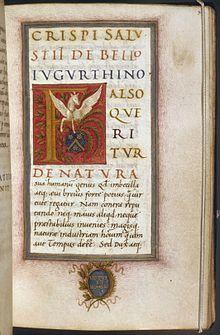 CRISPI SALV
STII DE BELLO
IVGVRTHINO
F ALSO
QVE
RI
TVR
DE NATVRA
sua humanũ genus qđ imbecilla
atq; æui breuis forte potius, quã uir
tute regatur. Nam contra repu
tando neq; maius aliud neque
præstabilius inuenies magisq;
naturæ industriam hominum quam
uim aut Tempus deẽe. Sed Dux atq;